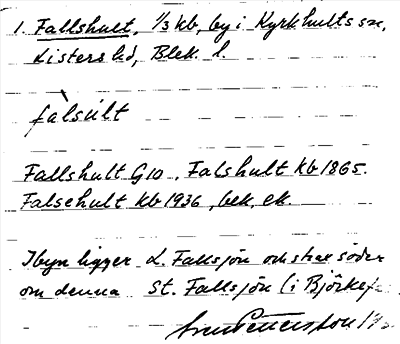 1. Fallshult, 1/3 kb, by i Kyrkhults sn,
Listers hd, Blek. l.
fàlsúlt
Fallshult G10. Falshult kb 1865.
Falsehult kb 1936, bek. ek.
I byn ligger L. Fallsjön och strax söder
om denna St. Fallsjön (i Björkef
Pettersson